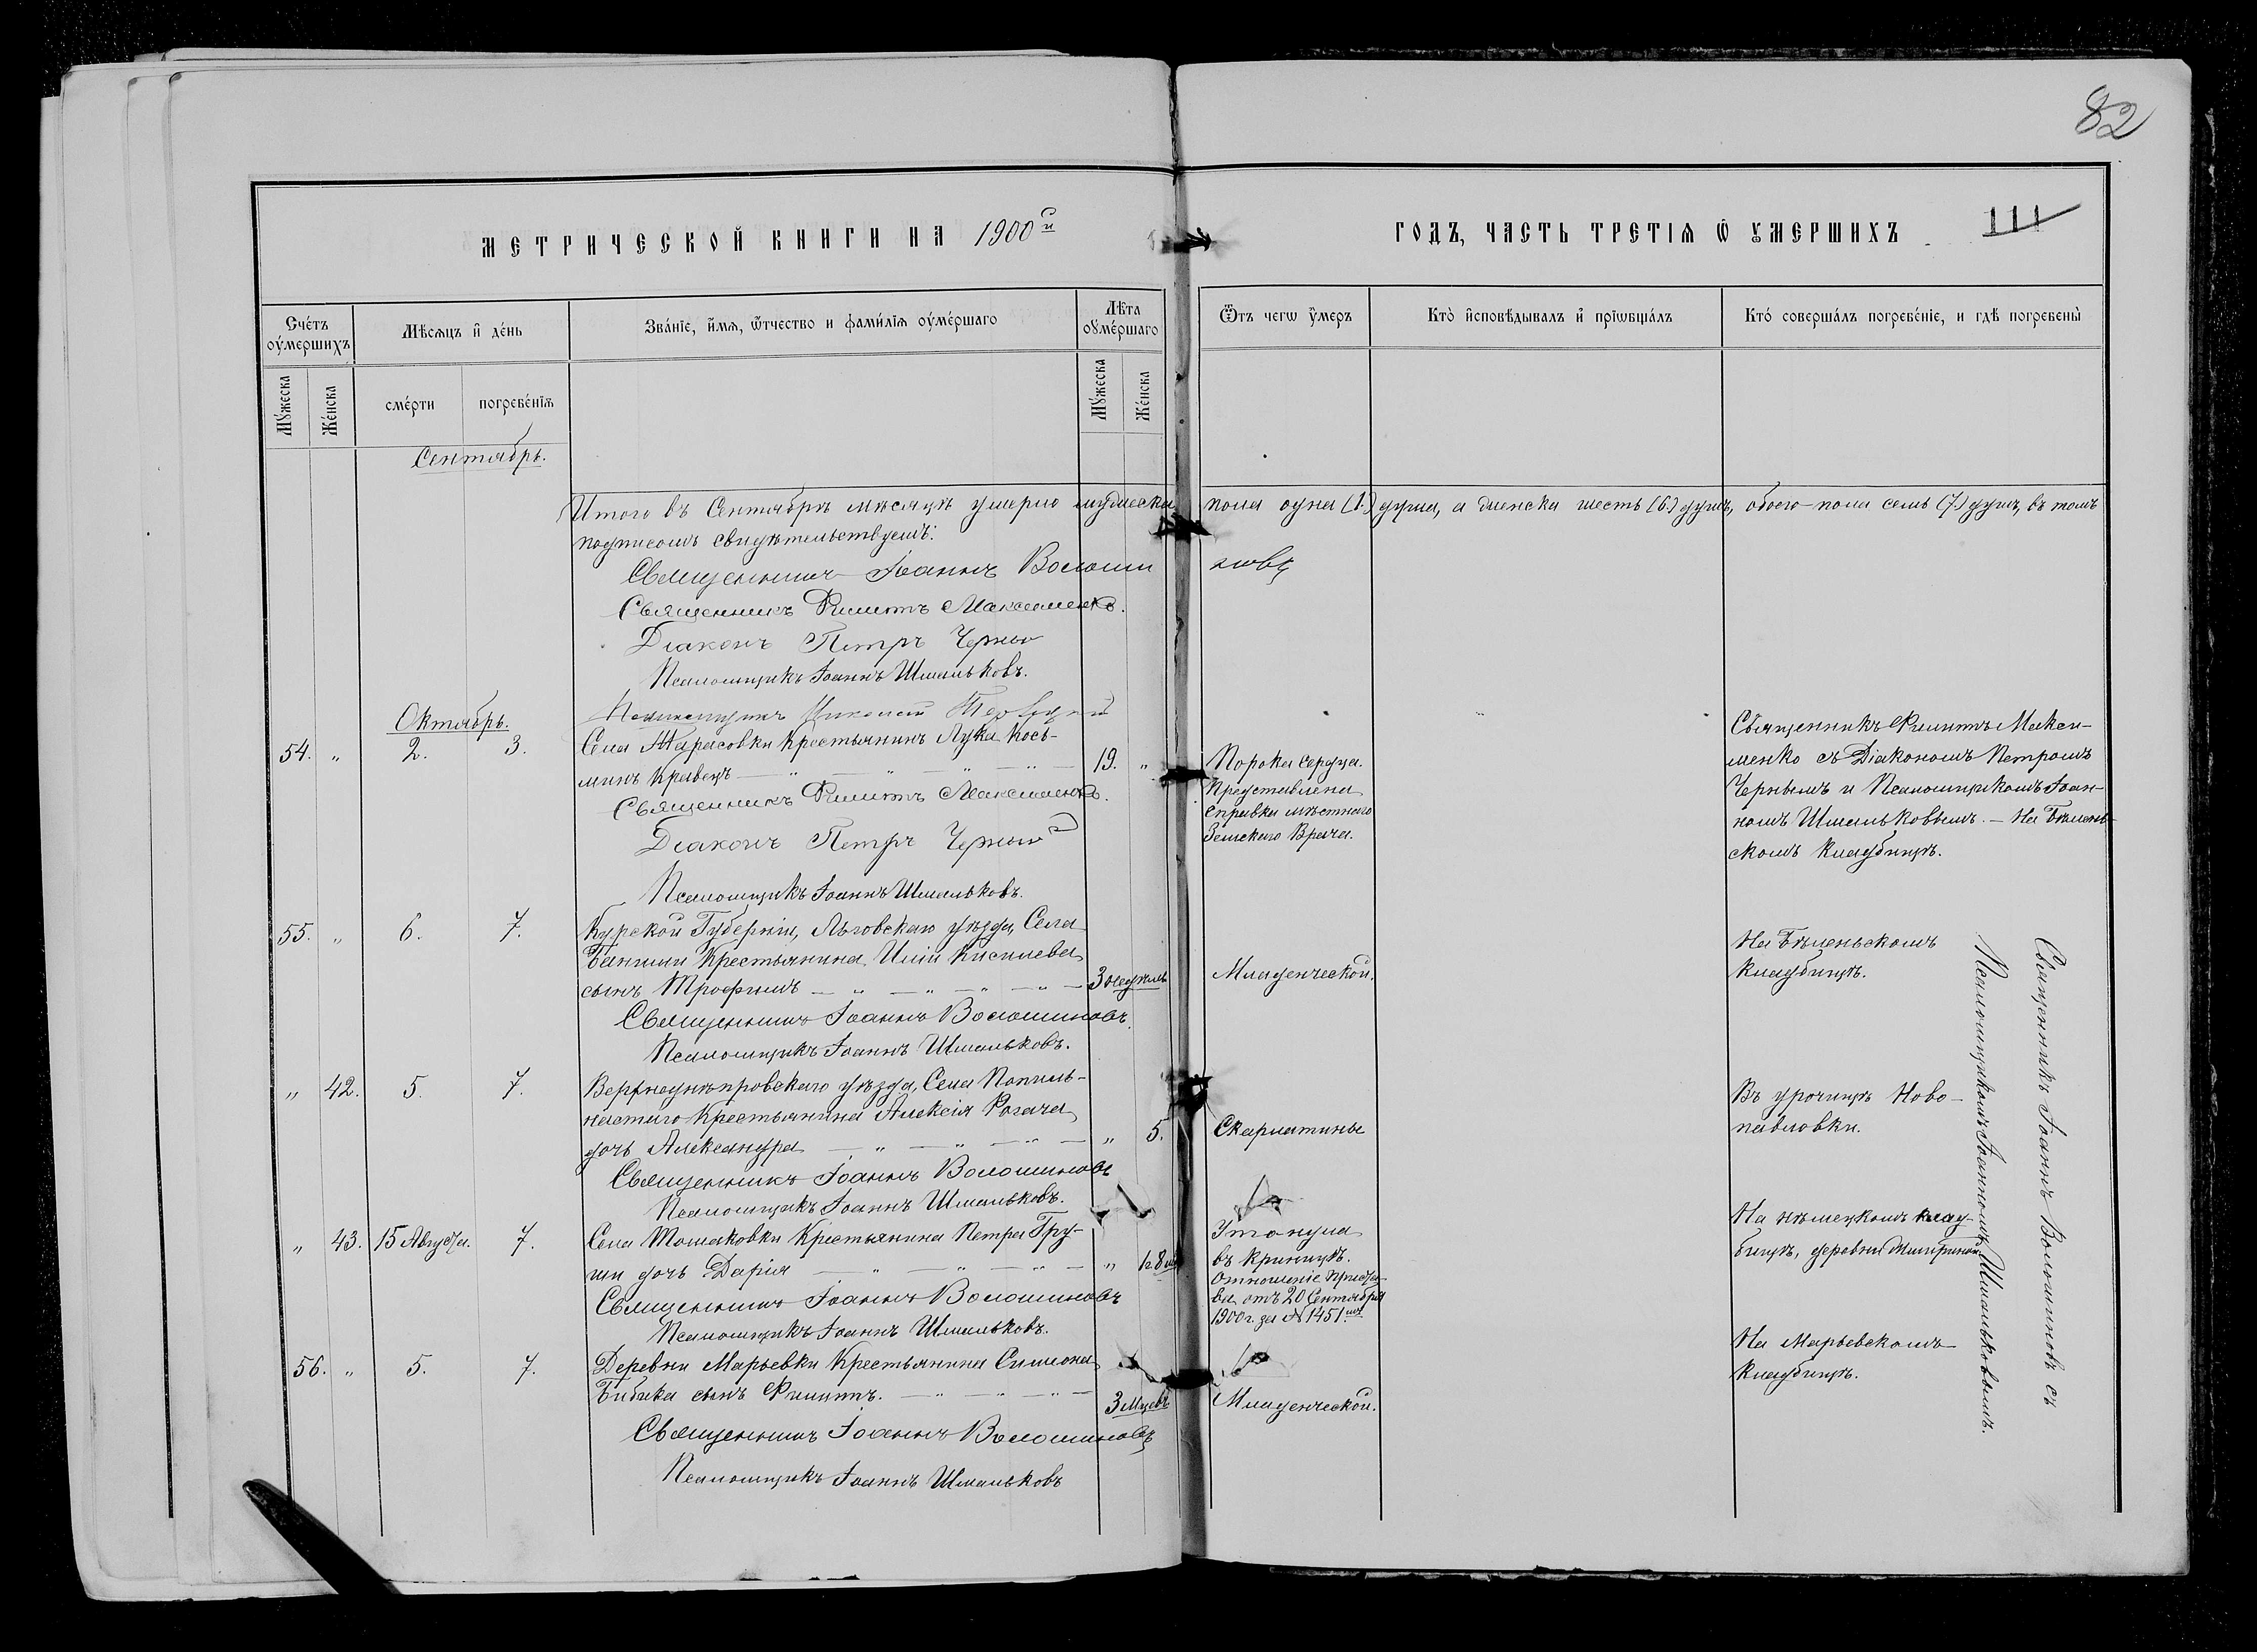 82
МЕТРИЧЕСКОЙ КНИГИ НА 1900й
ГОДЪ, ЧАСТЬ ТРЕТІѦ Ѿ ОУМЕРШИХЪ
111
Сче́тъ оу́мершихъ
Мѣсѧцъ и҆ де́нь
Зва́нїе, и҆́мѧ, ѿ́тчество и фами́лїѧ оу́ме́ршаго
Лѣ̑та оу҆ме́ршаго
Ѿтъ чегѡ оу҆́меръ
Кто̀ и҆сповѣ́дывалъ и҆ прїѡбща́лъ
Кто́ соверша́лъ погребе́нїе, и гдѣ̀ погребены̀
Мꙋ́жеска
Же́нска
сме́рти
погребе́нїѧ
Мꙋ́жеска
Же́нска
Сентябрь.
Итого въ Сентябрѣ мѣсяцѣ умерло мужеска пола одна (1.) душа, а женска шесть (6.) душъ, обоего пола семь (7.) душъ, въ томъ
подписомъ свидѣтельствуемъ:
Священникъ Іоаннъ Волошиновъ
Священникъ Филиппъ Максименко.
Діаконъ Петръ Черный
Псаломщикъ Іоаннъ Шмальковъ.
Псаломщикъ Николай
Октябрь.
54. " 2. 3. Села Тарасовки Крестьянинъ Лука Кось-
минъ Кравецъ — " — " — " — 19. "
Священникъ Филиппъ Максименко.
Діаконъ Петръ Черный
Псаломщикъ Іоаннъ Шмальковъ.
Порока сердца.
Представлена
справка мѣстнаго
Земскаго Врача.
Священникъ Филиппъ Макси-
менко съ Діакономъ Петромъ
Чернымъ и Псаломщикомъ Іоан-
номъ Шмальковымъ. — На Бѣлень-
скомъ кладбищѣ.
55. " 6. 7. Курской Губерніи, Льговскаго уѣзда, Села
Банищи Крестьянина Иліи Киселева
сынъ Трофимъ — " — " — " — " — 3 недѣль
Священникъ Іоаннъ Волошиновъ.
Псаломщикъ Іоаннъ Шмальковъ.
Младенческой.
На Бѣленьскомъ
кладбищѣ.
" 42. 5. 7. Верхнеднѣпровскаго уѣзда, Села Попель-
настаго Крестьянина Алексія Рогача
дочь Александра — " — " — " — " 5.
Священникъ Іоаннъ Волошиновъ
Псаломщикъ Іоаннъ Шмальковъ.
Скарлатины
Въ урочищѣ Ново-
павловки.
" 43. 15 Августа. 7. Села Томаковки Крестьянина Петра Гру-
ши дочь Дарія — " — " — " — "
Священникъ Іоаннъ Волошиновъ
Псаломщикъ Іоаннъ Шмальковъ.
Утонула
въ криницѣ.
Отношеніе Приста-
ва отъ 20 Сентября
1900 г. за № 1451.мъ
На нѣмецкомъ клад-
бищѣ, деревни
56. " 5. 7. Деревни Марьевки Крестьянина Симеона
Бибика сынъ Филиппъ. — " — " — " — 3 Мцевъ
Священникъ Іоаннъ Волошиновъ
Псаломщикъ Іоаннъ Шмальковъ
Младенческой.
На Марьевскомъ
кладбищѣ.
Священникъ Іоаннъ Волошиновъ съ
Псаломщикомъ Іоанномъ Шмальковымъ.